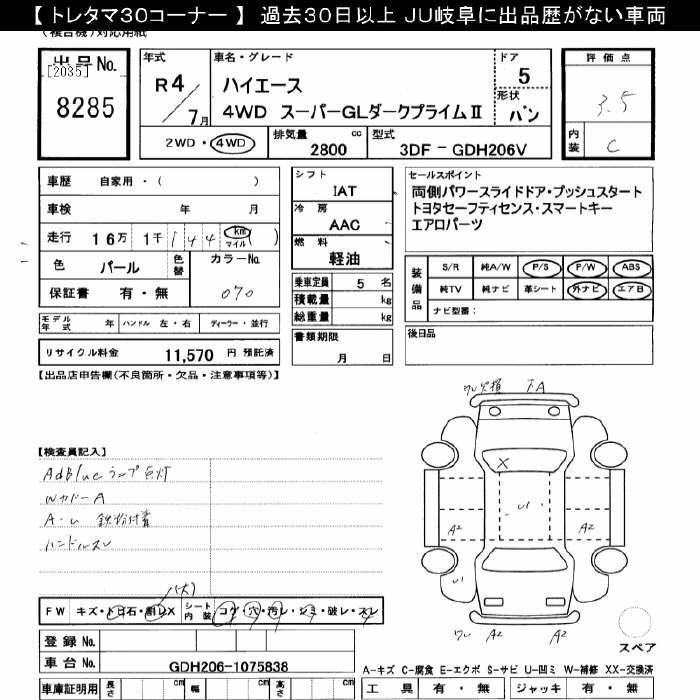 【 トレタマ30コーナー 】 過去30日以上 JU岐阜に出品歴がない車両
(複合機)対応用紙
出品No.
[2035]
8285
年式
R4/7月
車名・グレード
ハイエース
4WD スーパーGLダークプライムⅡ
ドア
5
形状
バン
評価点
3.5
内装
C
2WD・4WD
排気量 cc
2800
型式
3DF-GDH206V
車歴 自家用・( )
車検 年 月
走行 16万 1千144 km マイル ( )
色 パール 色替
カラーNo.
070
保証書 有・無
シフト
IAT
冷房
AAC
燃料
軽油
乗車定員 5 名
積載量 kg
総重量 kg
書類期限
月 日
セールスポイント
両側パワースライドドア・プッシュスタート
トヨタセーフティセンス・スマートキー
エアロパーツ
装備品
S/R 純A/W P/S P/W ABS
純TV 純ナビ 革シート 外ナビ エアB
ナビ型番:
後日品
モデル年式 年 ハンドル 左・右 ディーラー・並行
リサイクル料金 11,570 円 預託済
【出品店申告欄(不良箇所・欠品・注意事項等)】
【検査員記入】
AdBlueランプ点灯
WカバーA
A・U 鉄粉付着
ハンドルスレ
ワレ欠損 下A
X
U1
A2
A2
U1
ワレ A2 A2
スペア
(大)
FW キズ・トビ石・割レX
シート内装 コゲ・穴・汚レ・シミ・破レ・スレ
登録No.
車台No. GDH206-1075838
車庫証明用 長さ cm 幅 cm 高さ cm
A-キズ C-腐食 E-エクボ S-サビ U-凹ミ W-補修 XX-交換済
工具 有・無 ジャッキ 有・無